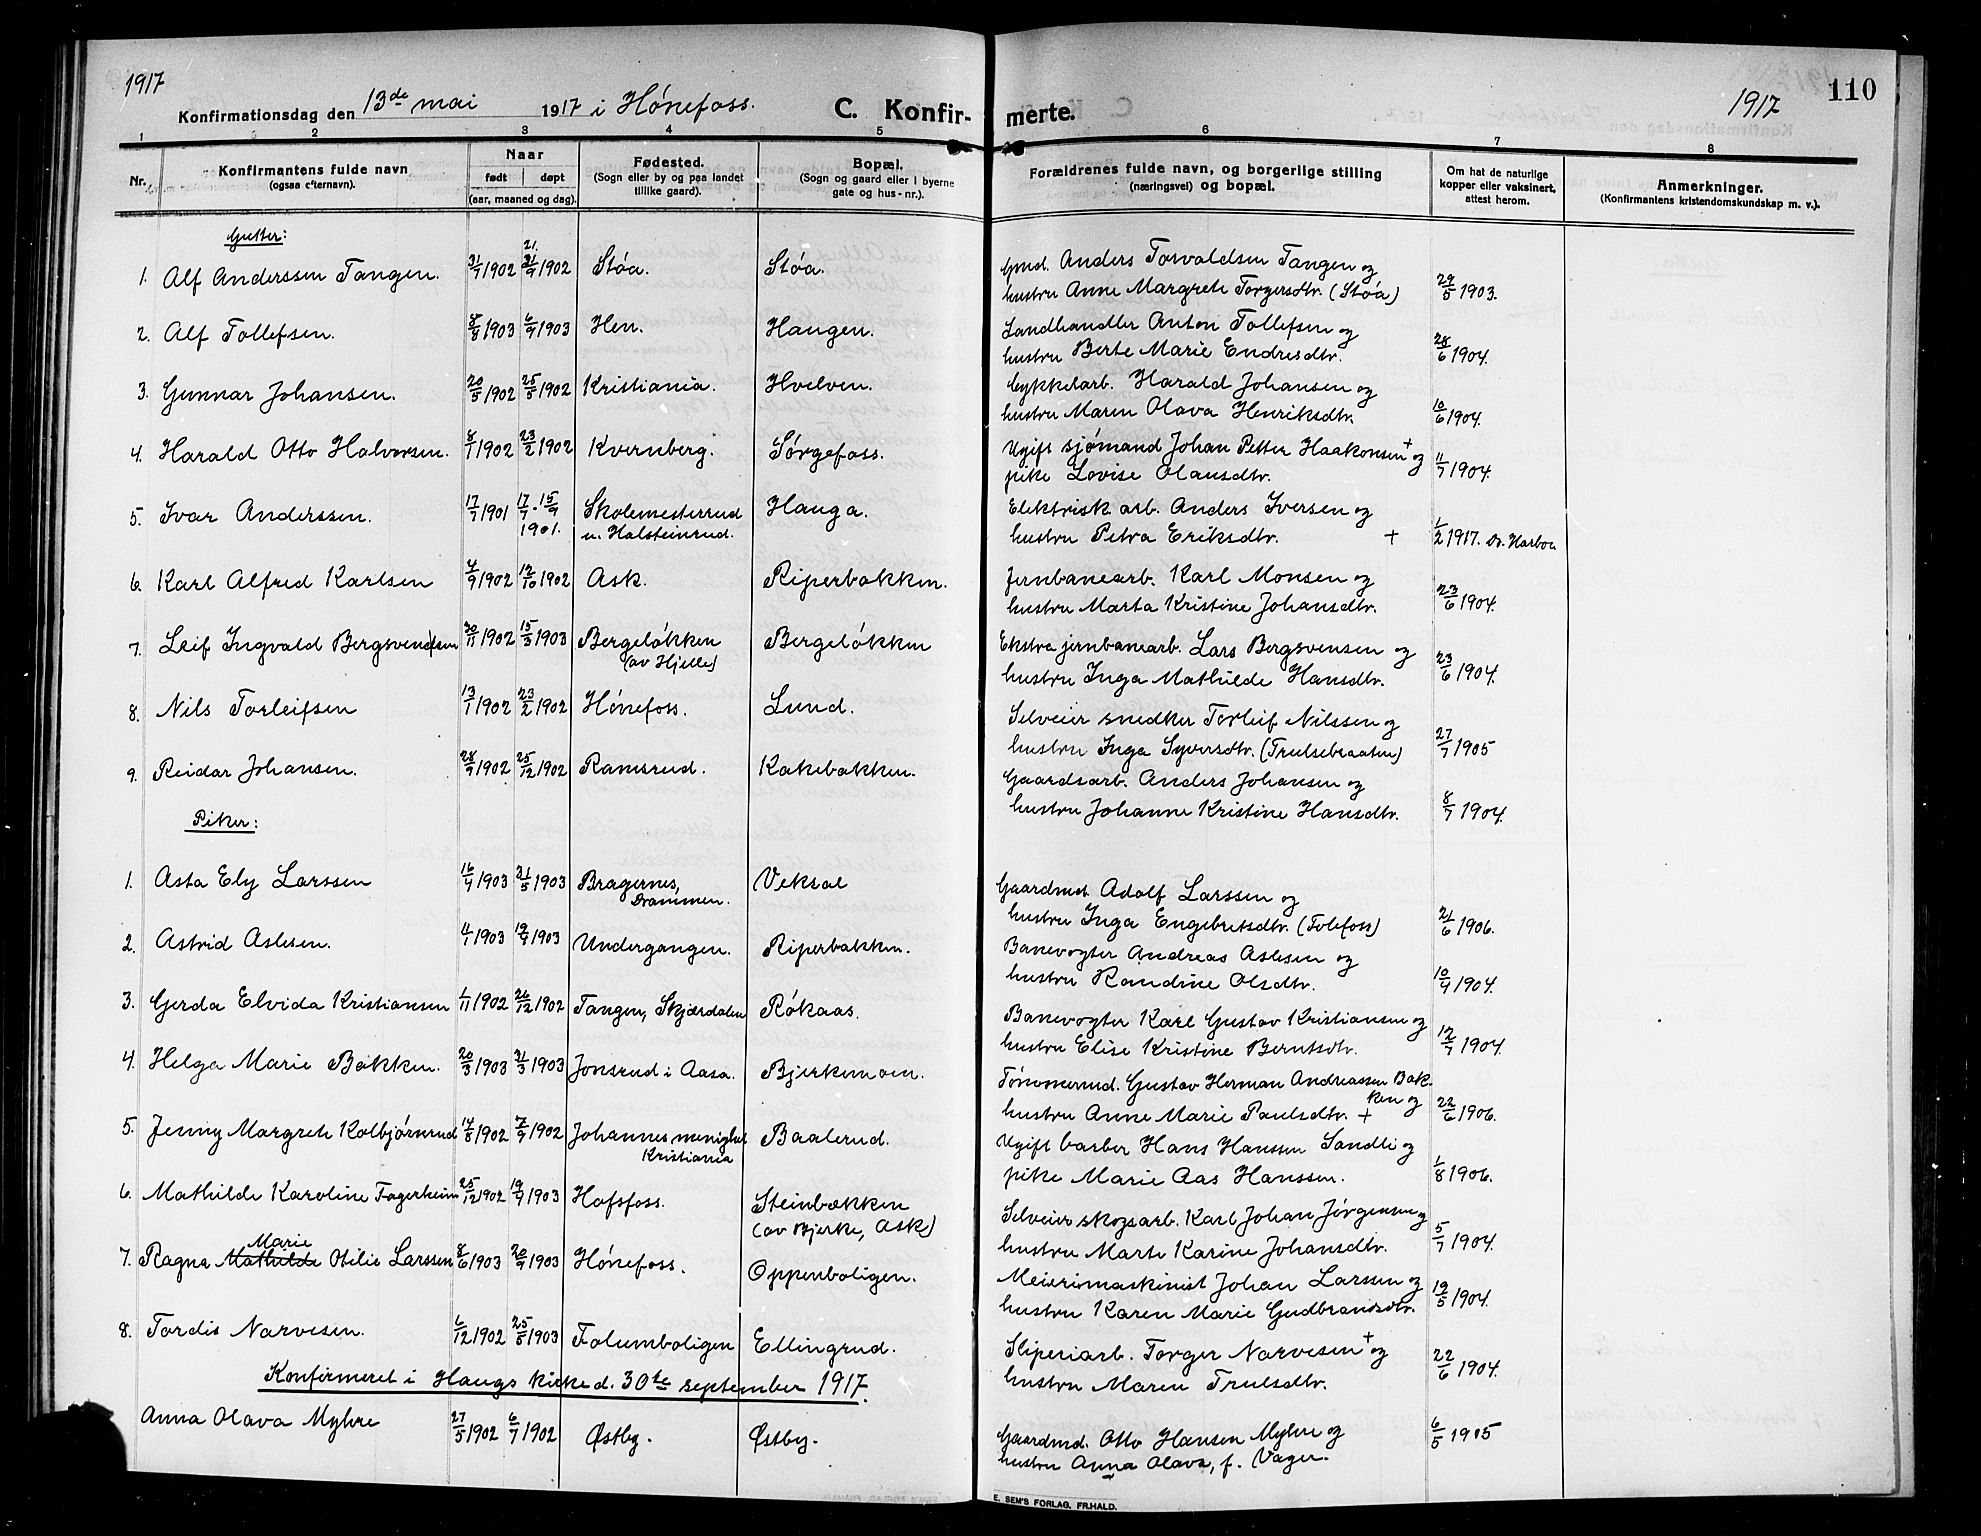 1917
Konfirmationsdag den 13de mai 1917 i Hónefoss.
C. Konfir-
merte.
1917
110
1 2 3 4 5 6 7 8
Nr.
Konfirmantens fulde navn
(ogsaa efternavn).
Naar
født døpt
(aar, maaned og dag).
Fødested.
(Sogn eller by og paa landet
tillike gaard).
Bopæl.
(Sogn og gaard eller i byerne
gate og hus-nr.).
Forældrenes fulde navn, og borgerlige stilling
(næringsvei) og bopæl.
Om hat de naturlige
kopper eller vaksinert,
attest herom.
Anmerkninger.
(Konfirmantens kristendomskundskap m. v.).
Gutter:
1. Alf Anderssen Tangen. 31/7 1902 21/9 1902 Støa. Støa.
Gmd. Anders Torvaldsen Tangen og
hustru Anne Margrete Torgersdtr. (Støa) 29/5 1903.
2. Alf Tollefsen. 8/8 1903 6/9 1903 Hen. Haugen.
Landhandler Anton Tollefsen og
hustru Berte Marie Endresdtr. 28/6 1904.
3. Gunnar Johansen. 20/5 1902 25/5 1902 Kristiania. Hvelven.
Cykkelarb. Harald Johansen og
hustru Maren Olava Henriksdtr. 10/6 1904.
4. Harald Otto Halvorsen. 8/1 1902 23/2 1902 Kvernberg. Sørgefoss.
Ugift sjømand Johan Petter Haakonsen + og
pike Lovise Olausdtr. 11/7 1904.
5. Ivar Anderssen. 17/7 1901 17/7 - 15/9 1901. Skolemesterrud
u. Halsteinrud. Hauga.
Elektrisk arb. Anders Iversen og
hustru Petra Eriksdtr. + 1/2 1917. Dr. Harboe
6. Karl Alfred Karlsen 4/9 1902 12/10 1902 Ask. Riperbakken.
Jernbanearb. Karl Monsen og
hustru Marta Kristine Johansdtr. 23/6 1904.
7. Leif Ingvald Bergsvendsen 30/11 1902 15/3 1903 Bergeløkken
(av Hjelle) Bergeløkken
Ekstra jernbanearb. Lars Bergsvensen og
hustru Inga Mathilde Hansdtr. 23/6 1904.
8. Nils Torleifsen 13/1 1902 23/2 1902 Hónefoss. Lund.
Selveier snedker Torleif Nilssen og
hustru Inga Syversdtr. (Trulsebraaten) 27/7 1905
9. Reidar Johansen. 28/9 1902 25/12 1902 Ramsrud. Kakebakken.
Gaardsarb. Anders Johansen og
hustru Johanne Kristine Hansdtr. 8/7 1904.
Piker:
1. Asta Ely Larssen 16/4 1903 31/5 1903 Bragernes,
Drammen. Veksal
Gaardmd. Adolf Larssen og
hustru Inga Engebretsdtr. (Tolefoss) 21/6 1906.
2. Astrid Aslesen. 4/7 1903 19/9 1903 Undergangen. Riperbakken.
Banevogter Andreas Aslesen og
hustru Randine Olsdtr. 10/4 1904.
3. Gerda Elvida Kristiansen 1/11 1902 26/12 1902 Tangen, Skjærdalen Røkaas.
Banevogter Karl Gustav Kristiansen og
hustru Elise Kristine Berntsdtr. 12/7 1904.
4. Helga Marie Bakken. 20/3 1903 31/3 1903 Jonsrud i Aasa. Bjerkemoen.
Tømmermd. Gustav Herman Andreassen Bak-
ken og
hustru Anne Marie Paulsdtr. + 22/6 1906.
5. Jenny Margrete Kolbjørnrud 14/8 1902 7/9 1902 Johannes menighet
Kristiania Baalerud.
Ugift barber Hans Hanssen Sandli og
pike Marie Aas Hanssen. 1/8 1906.
6. Mathilde Karoline Fagerheim 25/12 1902 19/4 1903 Hofsfoss. Steinbækken
(av Bjerke, Ask)
Selveier skogsarb. Karl Johan Jørgensen og
hustru Marte Karine Johansdtr. 5/7 1904.
Marie
7. Ragna Mathilde Otilie Larssen 8/6 1903 20/9 1903 Hónefoss. Oppenboligen.
Meierimaskinist Johan Larssen og
hustru Karen Marie Gudbrandsdtr. 19/5 1904.
8. Tordis Narvesen. 6/12 1902 25/8 1903 Folumboligen Ellingrud.
Sliperiarb. Torger Narvesen + og
hustru Maren Trulsdtr. 22/6 1904.
Konfirmeret i Haugs kirke d. 30te september 1917.
Anna Olava Myhre 27/5 1902 6/7 1902 Østby. Østby.
Gaardmd. Otto Hansen Myhre og
hustru Anna Olava, f. Vager. 6/5 1905
E. SEM'S FORLAG, FR.HALD.